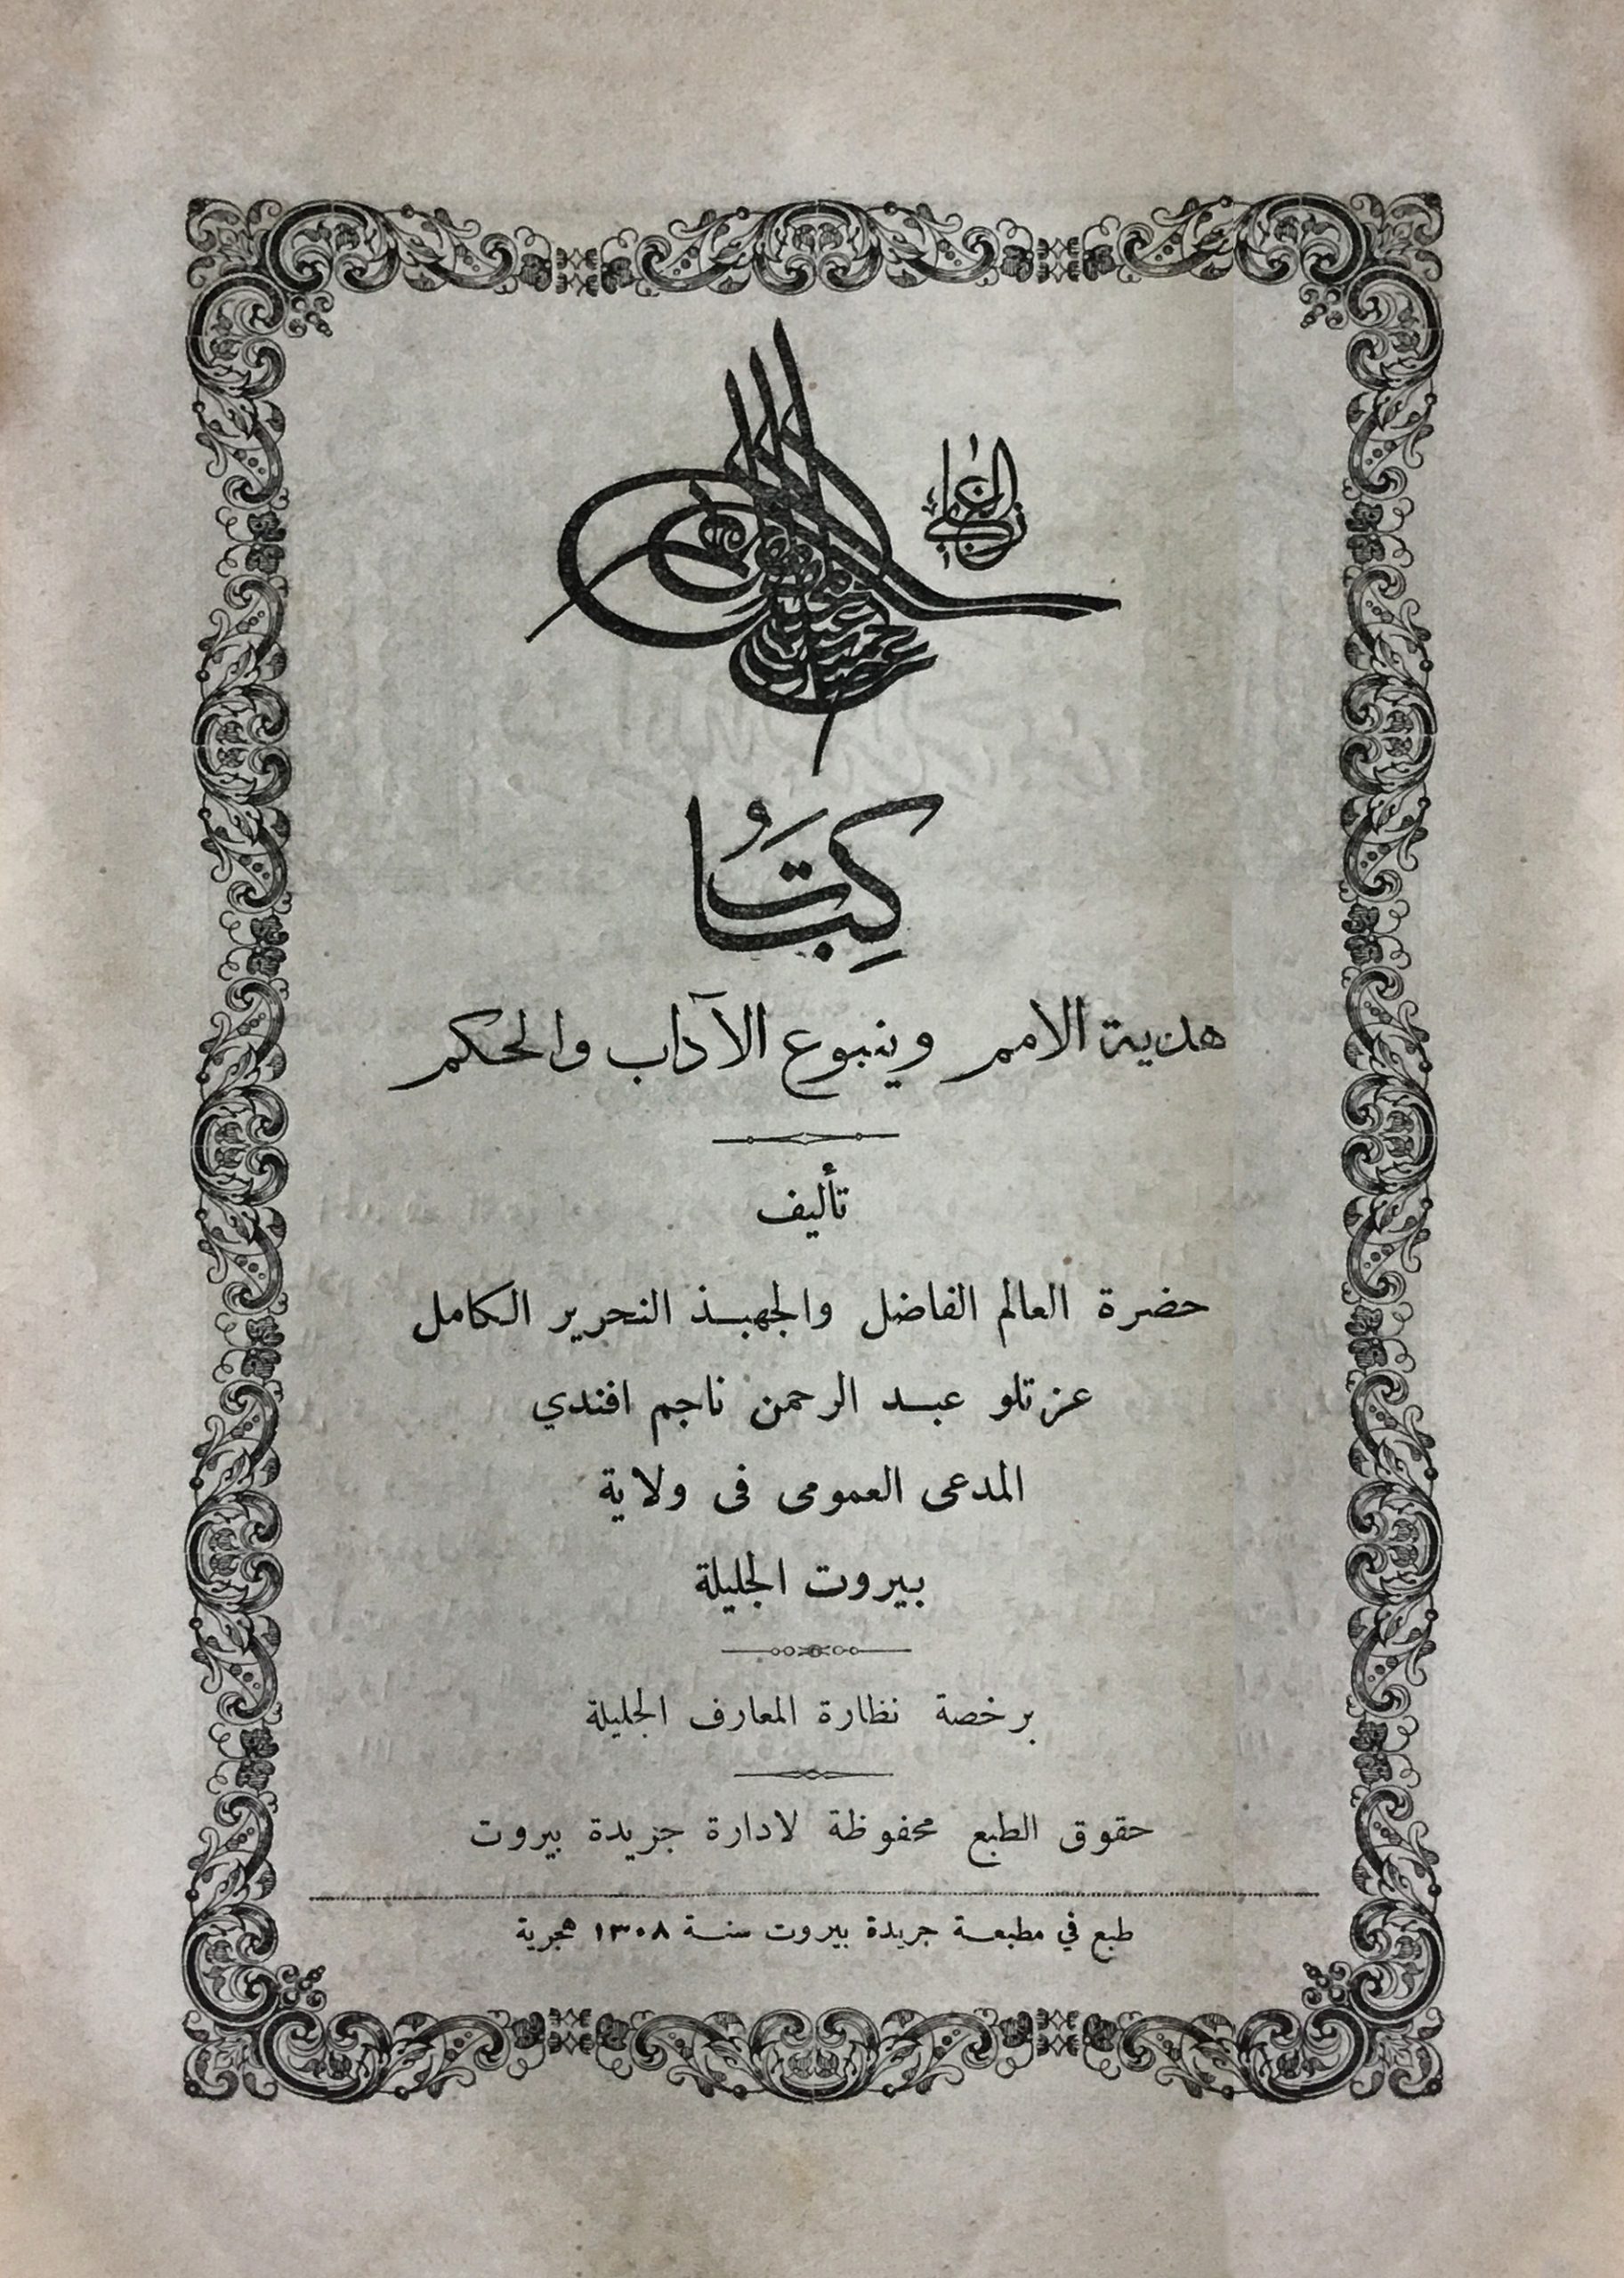 الغازي
كتاب
هدية الامم وينبوع الآداب والحكم
تأليف
حضرة العالم الفاضل والجهبذ النحرير الكامل
عزتلو عبد الرحمن ناجم افندي
المدعى العمومى فى ولاية
بيروت الجليلة
برخصة نظارة المعارف الجليلة
حقوق الطبع محفوظة لادارة جريدة بيروت
طبع في مطبعة جريدة بيروت سنة ١٣٠٨ هجرية